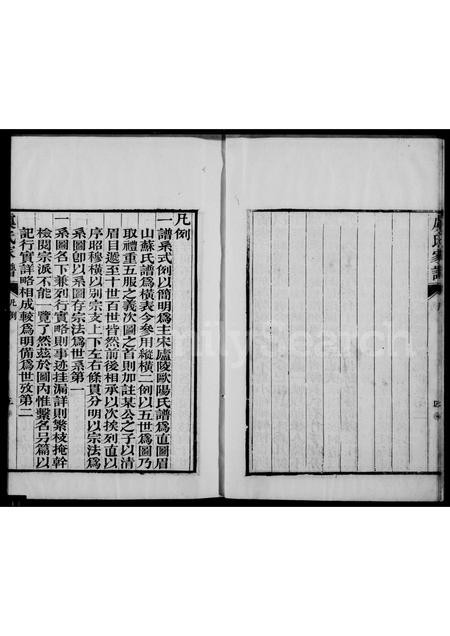 家譜
凡例
一譜系式例以簡明爲主宋廬陵歐陽氏譜爲直圖眉
山蘇氏譜爲橫表今參用縱橫二例以五世爲圖乃
取禮重五服之義次圖之首則加註某公之子以清
眉目遞至十世百世皆然前後相承以次挨列直以
序昭穆橫以別宗支上下左右條貫分明以宗法爲
系圖卽以系圖存宗法爲世系第一
一系圖名下兼列行實略則事迹挂漏詳則繁枝掩幹
檢閱宗派不能一覽了然茲於圖內惟繫名另篇以
記行實詳略相成較爲明備爲世攷第二
氏家譜
凡例
FamilySearch